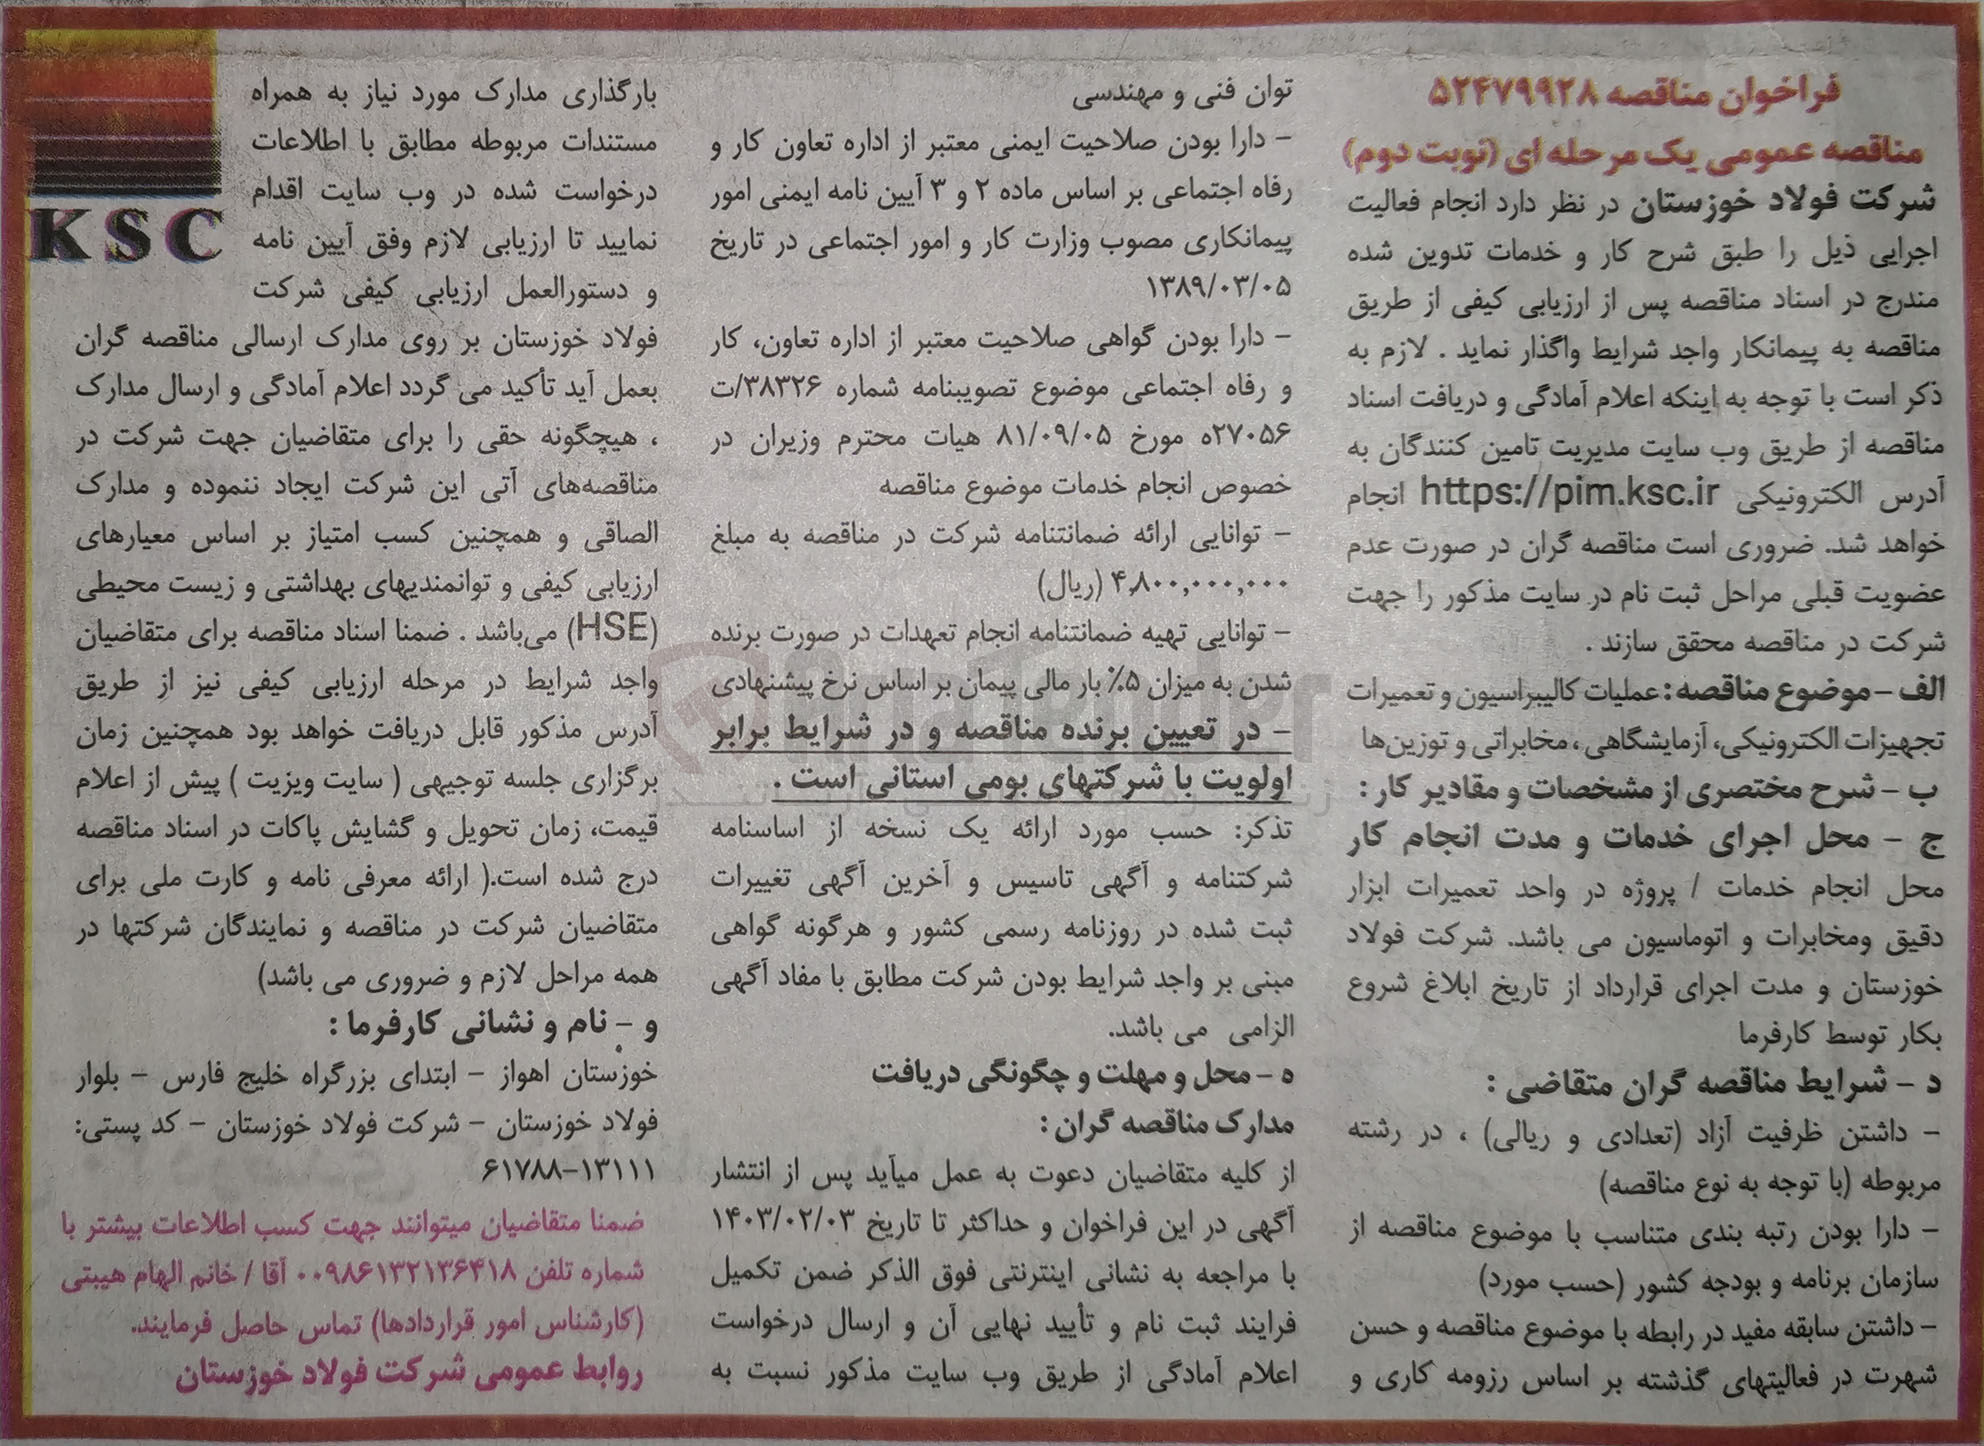 فراخوان مناقصه ۵۲۴۷۹۹۲۸
مناقصه عمومی یک مرحله ای (نوبت دوم)
شرکت فولاد خوزستان در نظر دارد انجام فعالیت
اجرایی ذیل را طبق شرح کار و خدمات تدوین شده
مندرج در اسناد مناقصه پس از ارزیابی کیفی از طریق
مناقصه به پیمانکار واجد شرایط واگذار نماید . لازم به
ذکر است با توجه به اینکه اعلام آمادگی و دریافت اسناد
مناقصه از طریق وب سایت مدیریت تامین کنندگان به
آدرس الکترونیکی https://pim.ksc.ir انجام
خواهد شد. ضروری است مناقصه گران در صورت عدم
عضویت قبلی مراحل ثبت نام در سایت مذکور را جهت
شرکت در مناقصه محقق سازند .
الف - موضوع مناقصه : عملیات کالیبراسیون و تعمیرات
تجهیزات الکترونیکی، آزمایشگاهی ، مخابراتی و توزین‌ها
ب - شرح مختصری از مشخصات و مقادیر کار :
ج - محل اجرای خدمات و مدت انجام کار
محل انجام خدمات / پروژه در واحد تعمیرات ابزار
دقیق ومخابرات و اتوماسیون می باشد. شرکت فولاد
خوزستان و مدت اجرای قرارداد از تاریخ ابلاغ شروع
بکار توسط کارفرما
د - شرایط مناقصه گران متقاضی :
- داشتن ظرفیت آزاد (تعدادی و ریالی) ، در رشته
مربوطه (با توجه به نوع مناقصه)
- دارا بودن رتبه بندی متناسب با موضوع مناقصه از
سازمان برنامه و بودجه کشور (حسب مورد)
- داشتن سابقه مفید در رابطه با موضوع مناقصه و حسن
شهرت در فعالیتهای گذشته بر اساس رزومه کاری و
توان فنی و مهندسی
- دارا بودن صلاحیت ایمنی معتبر از اداره تعاون کار و
رفاه اجتماعی بر اساس ماده ۲ و ۳ آیین نامه ایمنی امور
پیمانکاری مصوب وزارت کار و امور اجتماعی در تاریخ
۱۳۸۹/۰۳/۰۵
- دارا بودن گواهی صلاحیت معتبر از اداره تعاون، کار
و رفاه اجتماعی موضوع تصویبنامه شماره ۳۸۳۲۶/ت
۲۷۰۵۶ه مورخ ۸۱/۰۹/۰۵ هیات محترم وزیران در
خصوص انجام خدمات موضوع مناقصه
- توانایی ارائه ضمانتنامه شرکت در مناقصه به مبلغ
۴,۸۰۰,۰۰۰,۰۰۰ (ریال)
- توانایی تهیه ضمانتنامه انجام تعهدات در صورت برنده
شدن به میزان ۵٪ بار مالی پیمان بر اساس نرخ پیشنهادی
- در تعیین برنده مناقصه و در شرایط برابر
اولویت با شرکتهای بومی استانی است .
تذکر: حسب مورد ارائه یک نسخه از اساسنامه
شرکتنامه و آگهی تاسیس و آخرین آگهی تغییرات
ثبت شده در روزنامه رسمی کشور و هرگونه گواهی
مبنی بر واجد شرایط بودن شرکت مطابق با مفاد آگهی
الزامی می باشد.
ه - محل و مهلت و چگونگی دریافت
مدارک مناقصه گران :
از کلیه متقاضیان دعوت به عمل میآید پس از انتشار
آگهی در این فراخوان و حداکثر تا تاریخ ۱۴۰۳/۰۲/۰۳
با مراجعه به نشانی اینترنتی فوق الذکر ضمن تکمیل
فرایند ثبت نام و تأیید نهایی آن و ارسال درخواست
اعلام آمادگی از طریق وب سایت مذکور نسبت به
بارگذاری مدارک مورد نیاز به همراه
مستندات مربوطه مطابق با اطلاعات
درخواست شده در وب سایت اقدام
نمایید تا ارزیابی لازم وفق آیین نامه
و دستورالعمل ارزیابی کیفی شرکت
فولاد خوزستان بر روی مدارک ارسالی مناقصه گران
بعمل آید تأکید می گردد اعلام آمادگی و ارسال مدارک
، هیچگونه حقی را برای متقاضیان جهت شرکت در
مناقصه‌های آتی این شرکت ایجاد ننموده و مدارک
الصاقی و همچنین کسب امتیاز بر اساس معیارهای
ارزیابی کیفی و توانمندیهای بهداشتی و زیست محیطی
(HSE) می‌باشد . ضمنا اسناد مناقصه برای متقاضیان
واجد شرایط در مرحله ارزیابی کیفی نیز از طریق
آدرس مذکور قابل دریافت خواهد بود همچنین زمان
برگزاری جلسه توجیهی ( سایت ویزیت ) پیش از اعلام
قیمت، زمان تحویل و گشایش پاکات در اسناد مناقصه
درج شده است.( ارائه معرفی نامه و کارت ملی برای
متقاضیان شرکت در مناقصه و نمایندگان شرکتها در
همه مراحل لازم و ضروری می باشد)
و - نام و نشانی کارفرما :
خوزستان اهواز - ابتدای بزرگراه خلیج فارس - بلوار
فولاد خوزستان - شرکت فولاد خوزستان - کد پستی:
۶۱۷۸۸-۱۳۱۱۱
ضمنا متقاضیان میتوانند جهت کسب اطلاعات بیشتر با
شماره تلفن ۰۰۹۸۶۱۳۲۱۳۶۴۱۸ آقا / خانم الهام هیبتی
(کارشناس امور قراردادها) تماس حاصل فرمایند.
روابط عمومی شرکت فولاد خوزستان
KSC